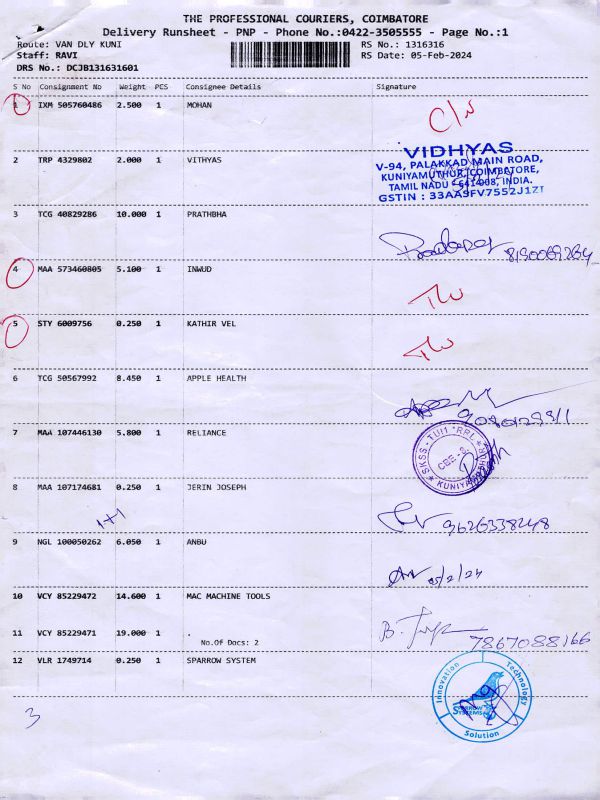 THE PROFESSIONAL COURIERS, COIMBATORE
Delivery Runsheet - PNP - Phone No.:0422-3505555 - Page No.:1
Route: VAN DLY KUNI RS No.: 1316316
Staff: RAVI RS Date: 05-Feb-2024
DRS No.: DCJB131631601
S No Consignment No Weight PCS Consignee Details Signature
1 IXM 505760486 2.500 1 MOHAN
VIDHYAS
V-94, PALAKKAD MAIN ROAD,
KUNIYAMUTHUR, COIMBATORE,
TAMIL NADU - 641008, INDIA.
GSTIN : 33AASFV7552J1ZT
2 TRP 4329802 2.000 1 VITHYAS
3 TCG 40829286 10.000 1 PRATHBHA
8190069264
4 MAA 573460805 5.100 1 INWUD
5 STY 6009756 0.250 1 KATHIR VEL
6 TCG 50567992 8.450 1 APPLE HEALTH
7 MAA 107446130 5.800 1 RELIANCE
8 MAA 107174681 0.250 1 JERIN JOSEPH
1+1
9626338248
9 NGL 100050262 6.050 1 ANBU
05/2/24
10 VCY 85229472 14.600 1 MAC MACHINE TOOLS
11 VCY 85229471 19.000 1 .
No.Of Docs: 2
7867088166
12 VLR 1749714 0.250 1 SPARROW SYSTEM
Innovation Technology
SPARROW
SYSTEMS
Solution
3